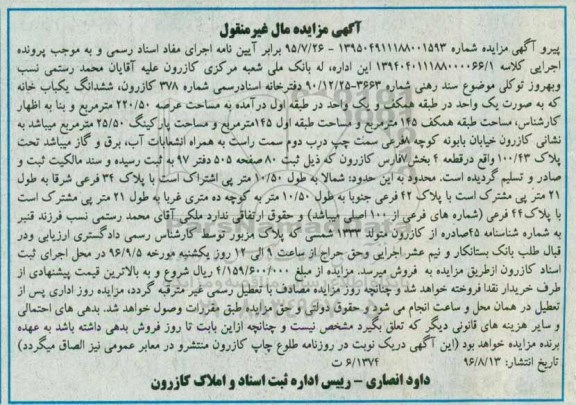 آگهی مزایده مال غیرمنقول
پیرو آگهی مزایده شماره ۱۳۹۵۰۴۹۱۱۱۸۸۰۰۱۵۹۳ - ۹۵/۷/۲۶ برابر آیین نامه اجرای مفاد اسناد رسمی و به موجب پرونده
اجرایی کلاسه ۱۳۹۴۰۴۰۱۱۱۸۸۰۰۰۰۶۶/۱ این اداره، له بانک ملی شعبه مرکزی کازرون علیه آقایان محمد رستمی نسب
وبهروز توکلی موضوع سند رهنی شماره ۳۶۶۳-۹۰/۱۲/۲۵ دفترخانه اسنادرسمی شماره ۳۷۸ کازرون، ششدانگ یکباب خانه
که به صورت یک واحد در طبقه همکف و یک واحد در طبقه اول درآمده به مساحت عرصه ۲۲۰/۵۰ مترمربع و بنا به اظهار
کارشناس، مساحت طبقه همکف ۱۴۵ مترمربع و مساحت طبقه اول ۱۴۵مترمربع و مساحت پارکینگ ۲۵/۵۰ مترمربع میباشد به
نشانی کازرون خیابان بابونه کوچه ۸فرعی سمت چپ درب دوم سمت راست به همراه انشعابات آب، برق و گاز میباشد تحت
پلاک ۱۰۰/۴۳ واقع درقطعه ۴ بخش۷فارس کازرون که ذیل ثبت ۸۰ صفحه ۵۰۵ دفتر ۹۷ به ثبت رسیده و سند مالکیت ثبت و
صادر و تسلیم گردیده است. محدود به این حدود: شمالا به طول ۱۰/۵۰ متر پی اشتراک است با پلاک ۳۴ فرعی شرقا به طول
۲۱ متر پی مشترک است با پلاک ۴۲ فرعی جنوبا به طول ۱۰/۵۰ متر به کوچه ده متری غربا به طول ۲۱ متر پی مشترک است
با پلاک۴۴ فرعی (شماره های فرعی از ۱۰۰ اصلی میباشد) و حقوق ارتفاقی ندارد ملکی آقای محمد رستمی نسب فرزند قنبر
به شماره شناسنامه ۴۵صادره از کازرون متولد ۱۳۳۳ شمسی که پلاک مزبور توسط کارشناس رسمی دادگستری ارزیابی ودر
قبال طلب بانک بستانکار و نیم عشر اجرایی وحق حراج از ساعت ۹ الی ۱۲ روز یکشنبه مورخه ۹۶/۹/۵ در محل اجرای ثبت
اسناد کازرون ازطریق مزایده به فروش میرسد. مزایده از مبلغ ۴/۱۵۹/۶۰۰/۰۰۰ ریال شروع و به بالاترین قیمت پیشنهادی از
طرف خریدار نقدا فروخته خواهد شد و چنانچه روز مزایده مصادف با تعطیل رسمی غیر مترقبه گردد، مزایده روز اداری پس از
تعطیل در همان محل و ساعت انجام می شود و حقوق دولتی و حق مزایده طبق مقررات وصول خواهد شد. بدهی های احتمالی
و سایر هزینه های قانونی دیگر که تعلق بگیرد مشخص نیست و چنانچه ازاین بابت تا روز فروش بدهی داشته باشد به عهده
برنده مزایده خواهد بود (این آگهی دریک نوبت در روزنامه طلوع چاپ کازرون منتشرو در معابر عمومی نیز الصاق میگردد)
تاریخ انتشار: ۹۶/۸/۱۳ ۶/۱۳۷۴ ت
داود انصاری - رییس اداره ثبت اسناد و املاک کازرون